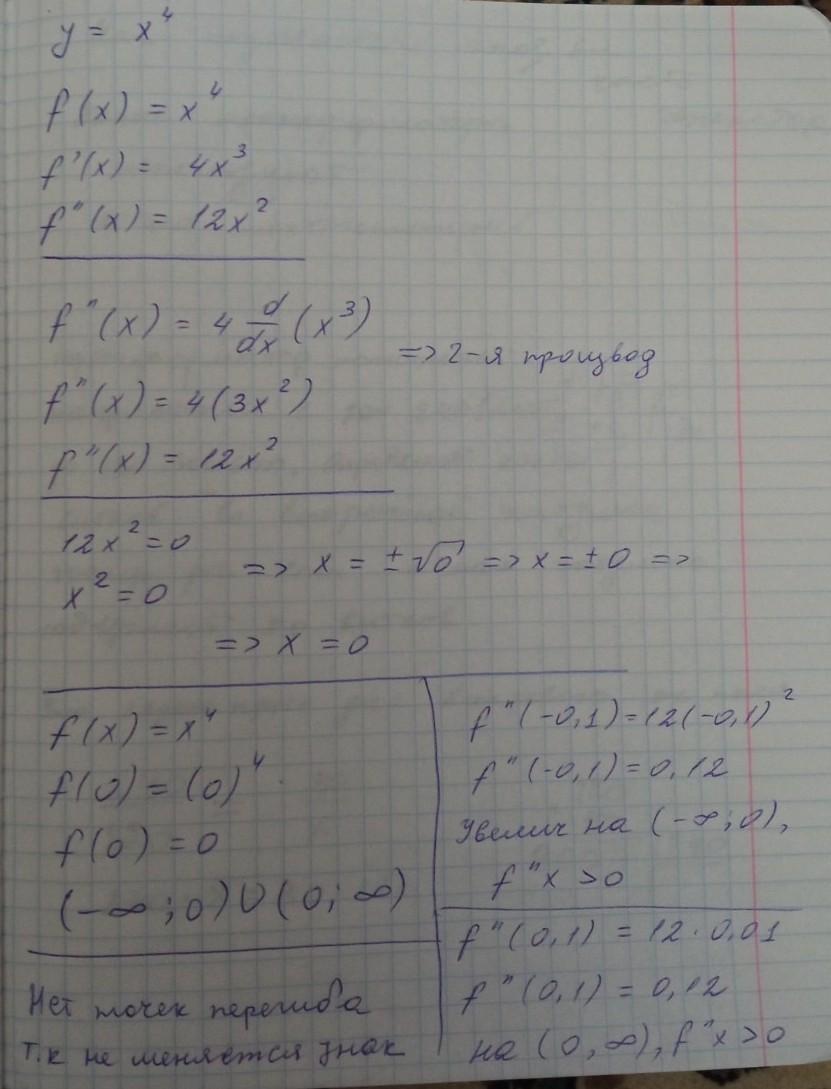 y = x⁴
f(x) = x⁴
f'(x) = 4x³
f"(x) = 12x²
f"(x) = 4 d/dx (x³)
=> 2-я производ
f"(x) = 4(3x²)
f"(x) = 12x²
12x² = 0
x² = 0
=> x = ±√0 => x = ±0 =>
=> x = 0
f(x) = x⁴
f(0) = (0)⁴
f(0) = 0
(-∞; 0) U (0; ∞)
Нет точек перегиба
т.к не меняется знак
f"(-0,1) = 12(-0,1)²
f"(-0,1) = 0,12
Увелич на (-∞; 0),
f"x > 0
f"(0,1) = 12 · 0,01
f"(0,1) = 0,12
на (0, ∞), f"x > 0